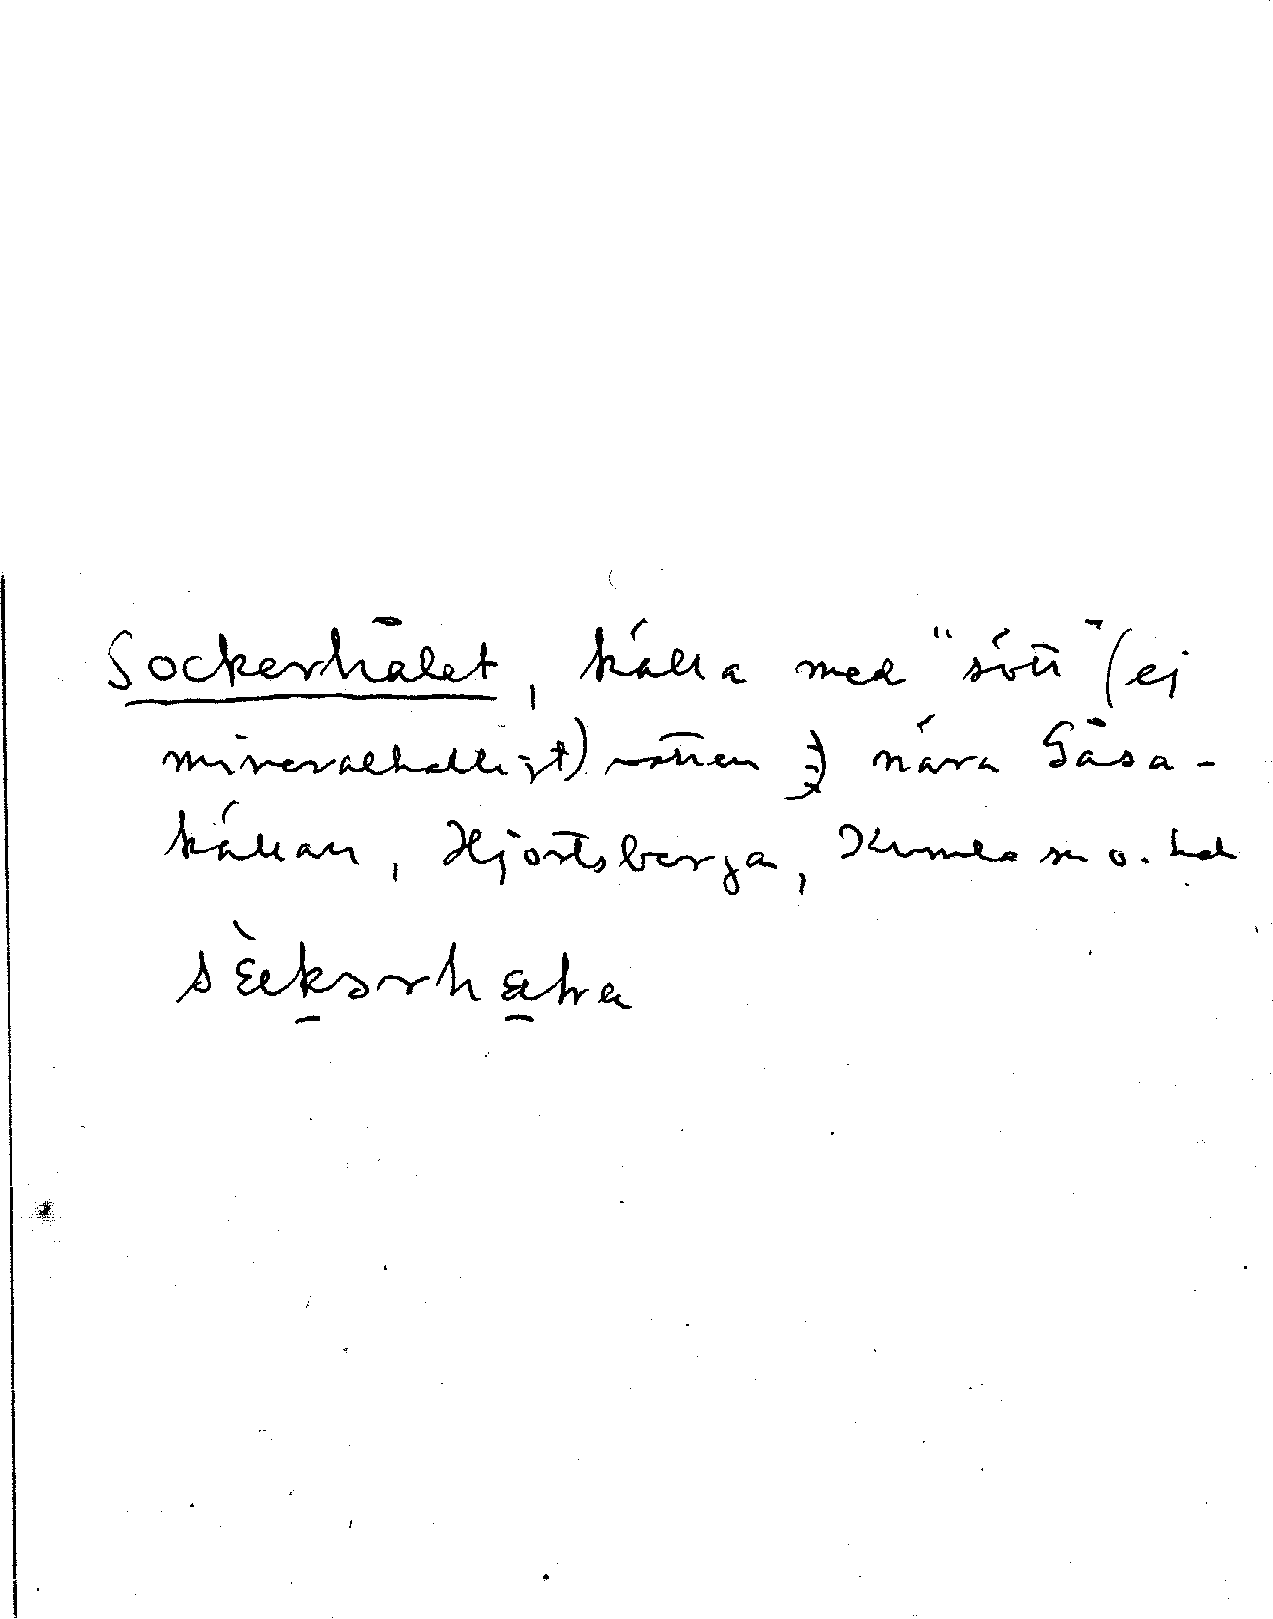 Sockerhålet, källa med "sött" (ej
mineralhaltigt) vatten nära Gåsa-
källan, Hjortsberga, Kumla sn o. hd